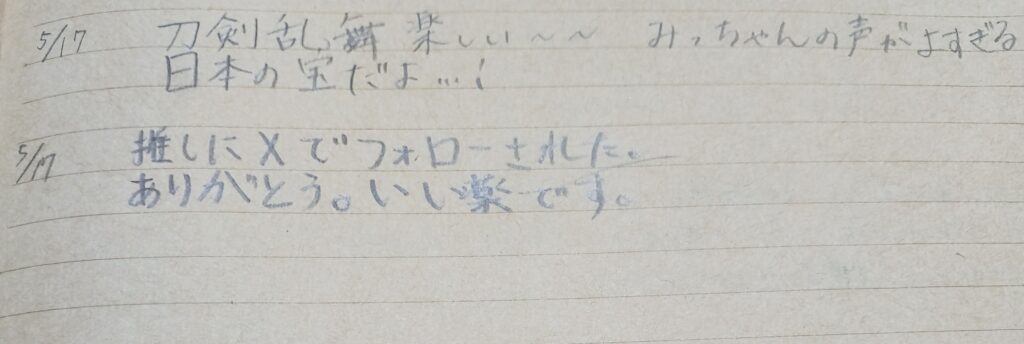 5/17 刀剣乱舞 楽しい〜〜 みっちゃんの声がよすぎる
日本の宝だよ...!
5/17 推しにXでフォローされた。
ありがとう。いい薬です。